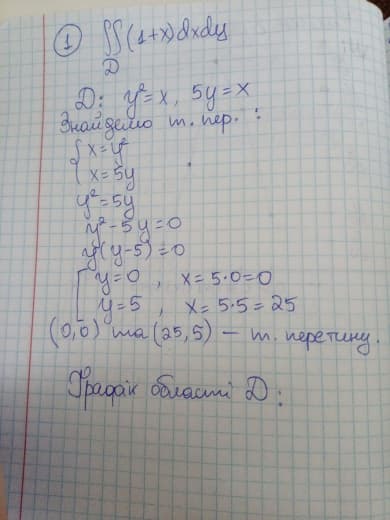 ① ∬(1+x)dxdy
D
D: y²=x, 5y=x
Знайдемо т. пер. :
{ x=y²
x=5y
y²=5y
y²-5y=0
y(y-5)=0
[ y=0 , x=5·0=0
y=5 , x=5·5=25
(0,0) та (25,5) — т. перетину.
Графік області D: